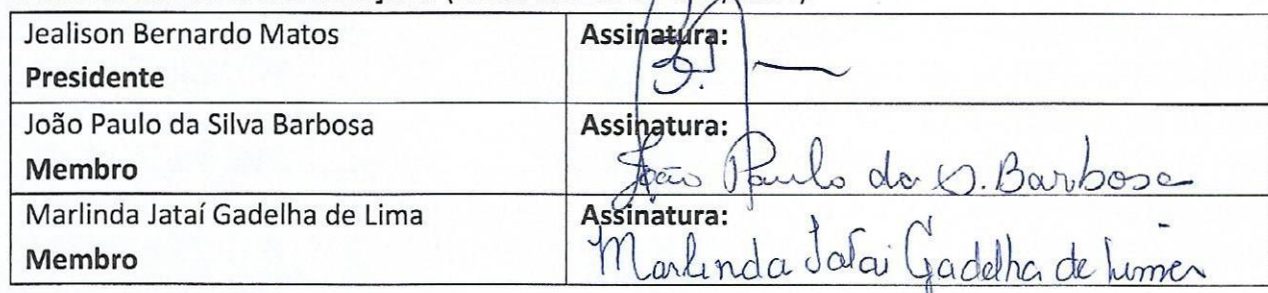 Jealison Bernardo Matos
Presidente
Assinatura:
João Paulo da Silva Barbosa
Membro
Assinatura:
João Paulo da S. Barbosa
Marlinda Jataí Gadelha de Lima
Membro
Assinatura:
Marlinda Jatai Gadelha de Lima